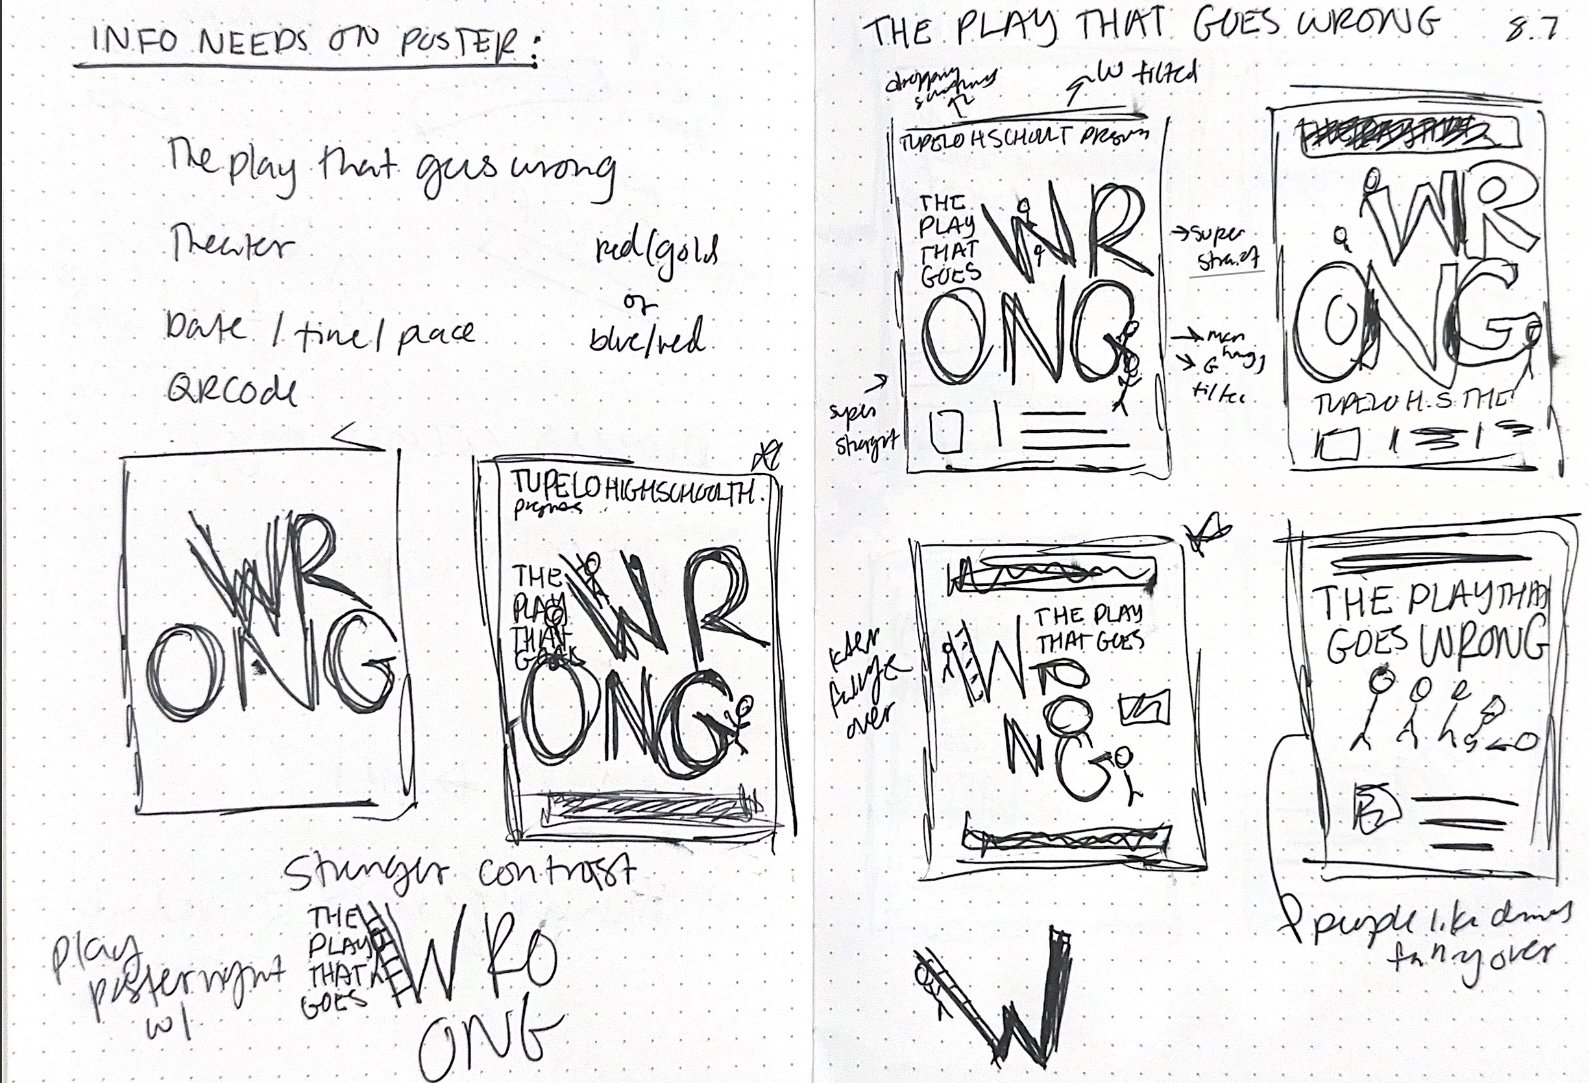 INFO NEEDS ON POSTER:
The play that goes wrong
Theater
red/gold
or
Date / time / place
blue/red
QR Code
WR
ONG
TUPELO HIGH SCHOOL TH.
THE
PLAY
THAT
WR
ONG
stronger contrast
THE
PLAY
THAT
GOES
WRO
ONG
play
poster
w/
THE PLAY THAT GOES WRONG 8.7
W tilted
TUPELO H SCHOOL T
THE
PLAY
THAT
GOES
WR
ONG
super
straight
super
man
hangs
G
WR
ONG
TUPELO H.S THE
THE PLAY
THAT GOES
W
R
O
N
G
over
THE PLAY THAT
GOES WRONG
people like
over
W